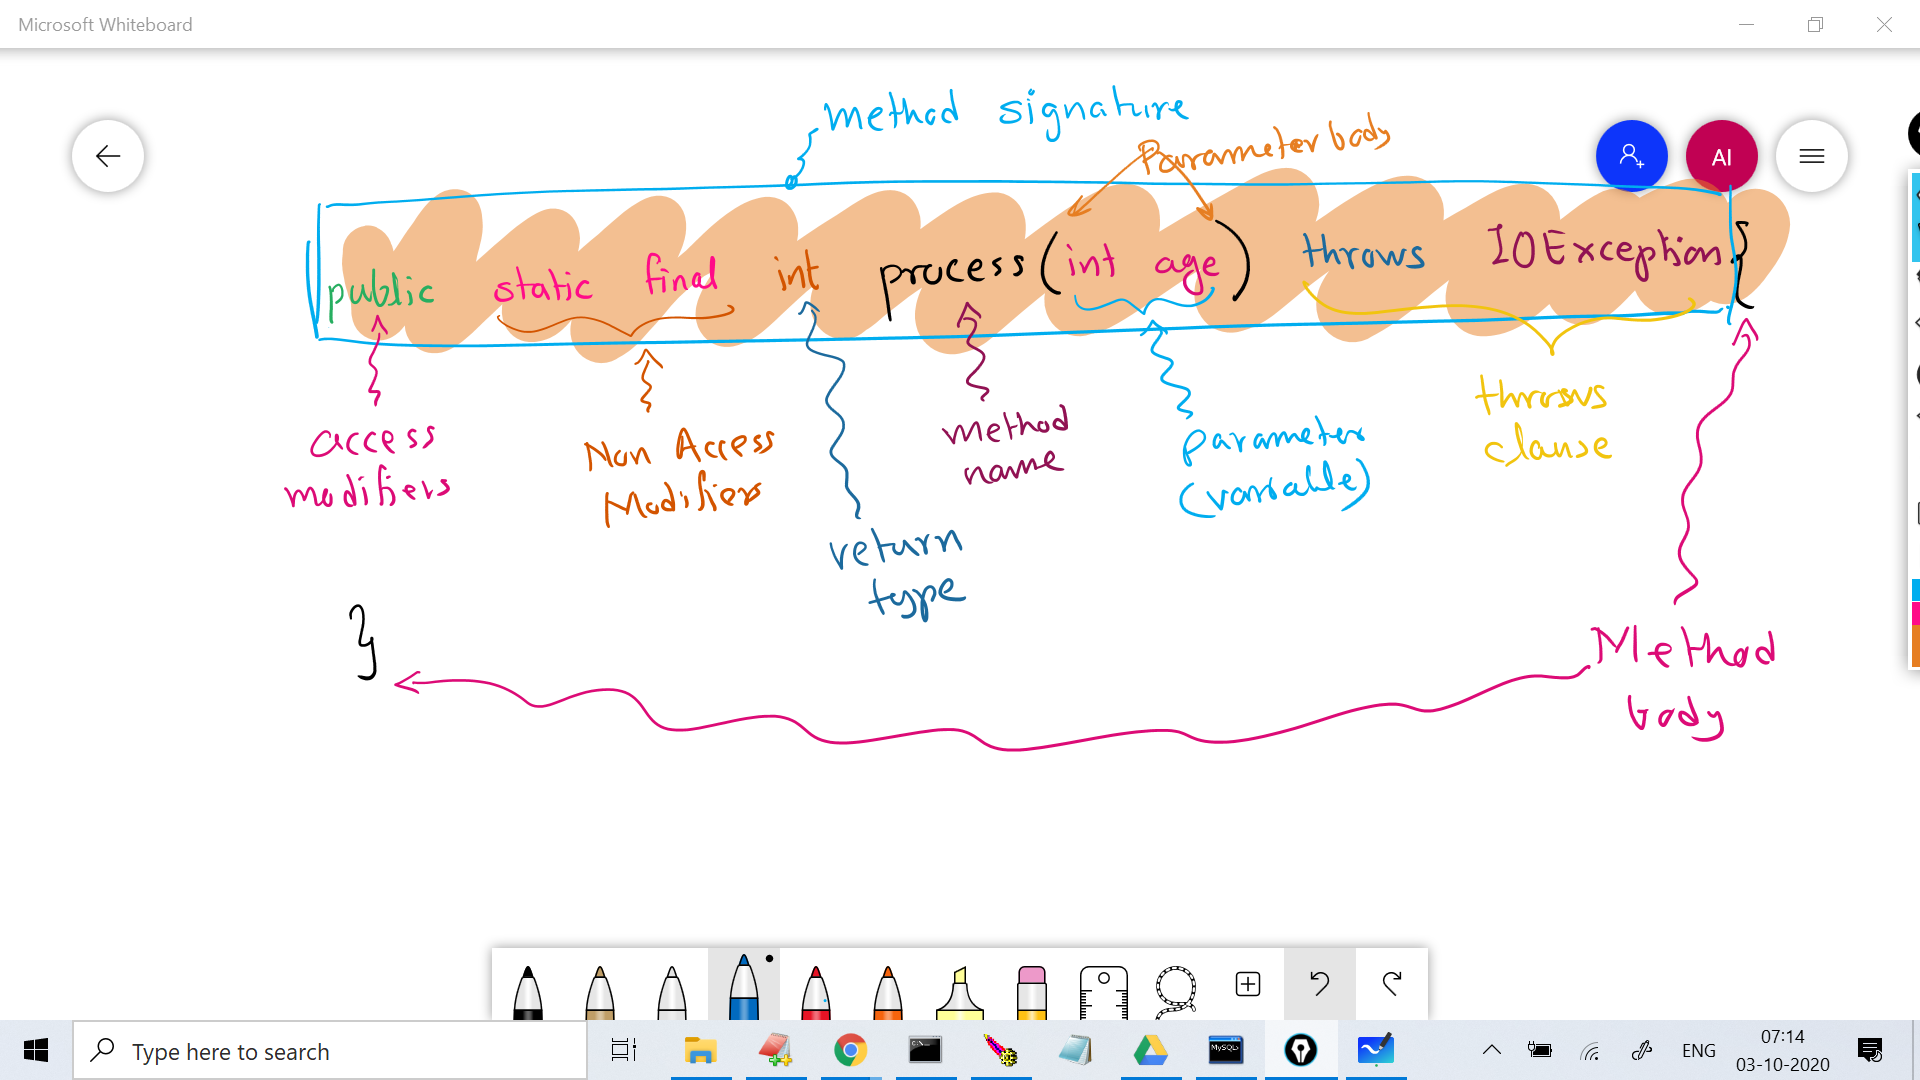 Microsoft Whiteboard
method signature
Parameter body
AI
public static final int process(int age) throws IOException {
access
modifiers
Non Access
Modifiers
return
type
method
name
parameter
(variable)
throws
clause
}
Method
body
Type here to search
C:\_
MySQL
ENG
07:14
03-10-2020